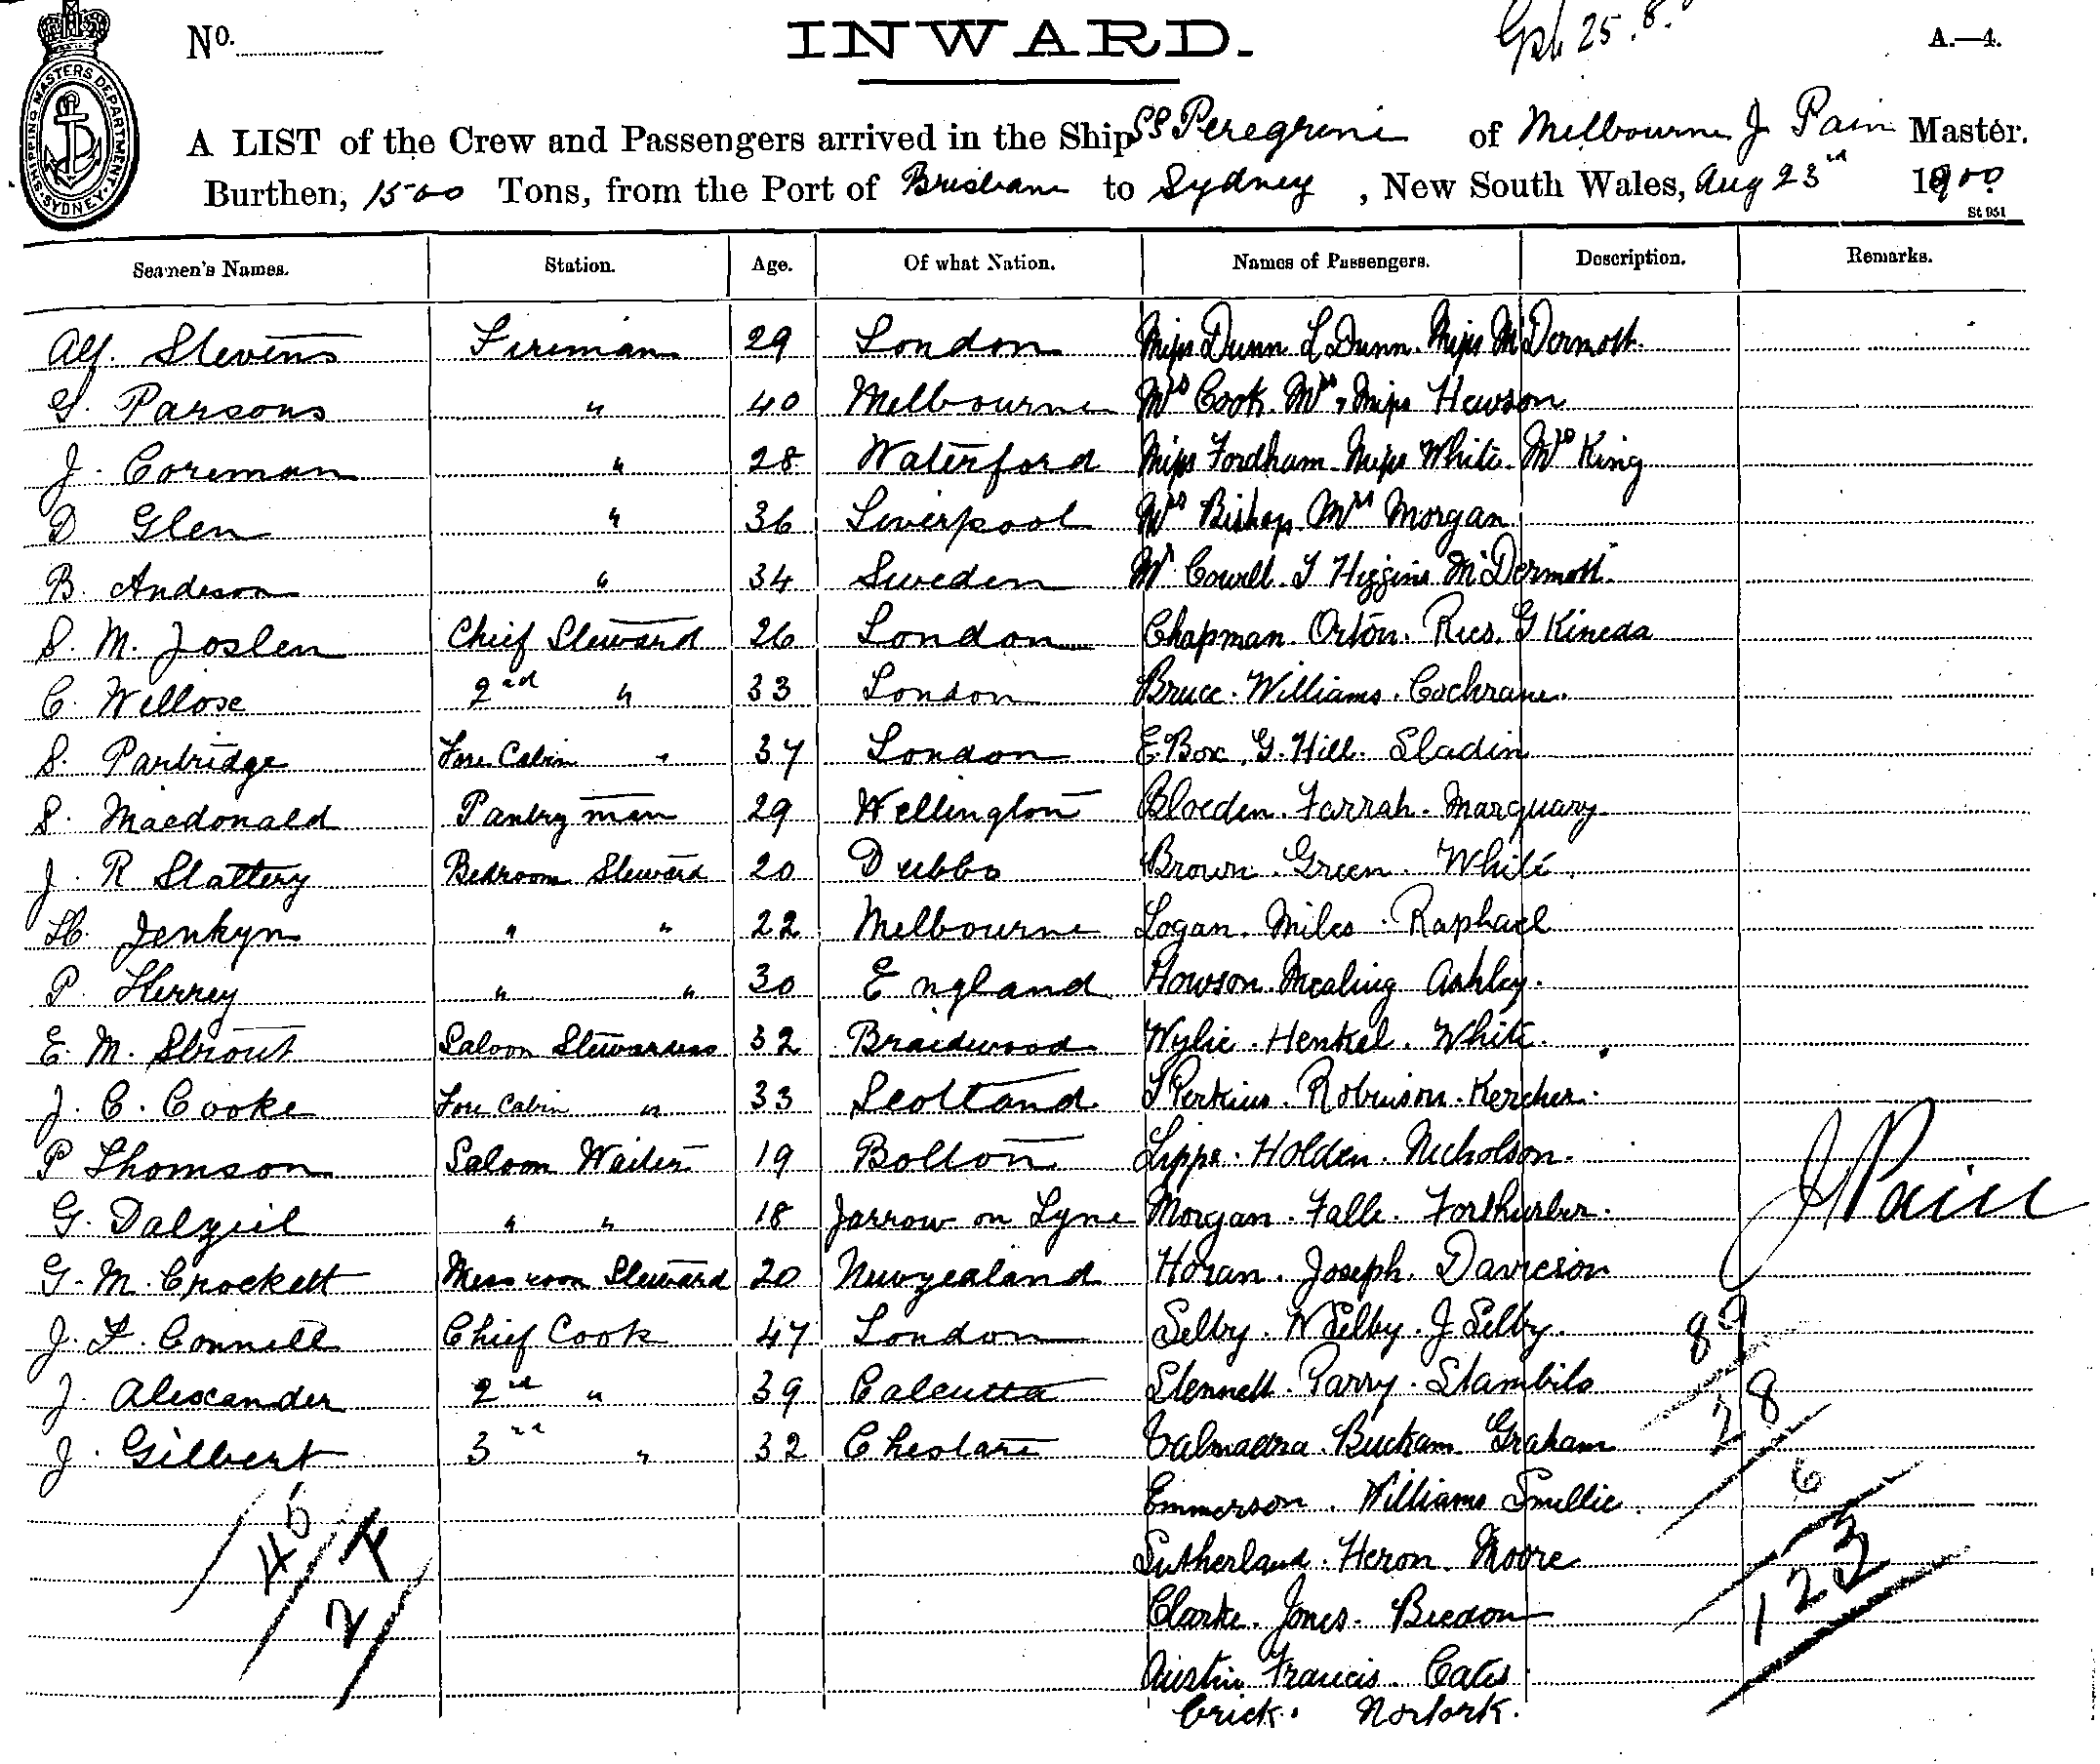 No. INWARD. 25.8. A.—4.
SHIPPING MASTERS DEPARTMENT. SYDNEY.
A LIST of the Crew and Passengers arrived in the Ship SS Peregrine of Melbourne J Pain Master.
Burthen, 1500 Tons, from the Port of Brisbane to Sydney, New South Wales, Aug 23rd 1900
St 951
Seamen's Names. Station. Age. Of what Nation. Names of Passengers. Description. Remarks.
Alf. Stevens Fireman 29 London Miss Dunn L Dunn. Miss McDermott.
G. Parsons " 40 Melbourne Mrs Cook. Mrs, Miss Hewson
J. Coreman " 28 Waterford Miss Fordham Miss White. Mrs King
D Glen " 36 Liverpool Mrs Bishop Mrs Morgan
B. Anderson " 34 Sweden Mr Cowell. T Higgins McDermott.
S. M. Joslen Chief Steward 26 London Chapman. Orton. Rees. G Kineda
C. Wellose 2nd " 33 London Bruce. Williams. Cochrane.
S. Partridge Fore Cabin " 37 London E. Box, G. Hill. Sladin
S. Macdonald Pantryman 29 Wellington Bloeden. Farrah. Marquary.
J. R Slattery Bedroom Steward 20 Dubbo Brown. Green. White.
H. Jenkyn " " 22 Melbourne Logan. Miles. Raphael
P. Herrey " " 30 England Howson. Mealing Ashley.
E. M. Strout Saloon Stewardess 32 Braidwood Wylie. Henkel. White.
J. C. Cooke Fore Cabin " 33 Scotland T Perkins. Robinson. Kercher.
P Thomson Saloon Waiter 19 Bolton Lippe. Holden. Nicholson.
G. Dalziel " " 18 Jarrow on Tyne Morgan. Falle.
G. M. Crockett Messroom Steward 20 Newzealand Horan. Joseph. Davieson
J Pain
J. F. Connell Chief Cook 47 London Selby. W Selby. J Selby. 89
J. Alexander 2nd " 39 Calcutta Stennett. Parry. 28
J. Gilbert 3rd " 32 Buckam. Graham
Emmerson. Williams Smellie. 6
45 Sutherland. Heron. Moore 123
24 Clarke. Jones. Bredon
Austin Francis. Cates.
Crick. Norfork.